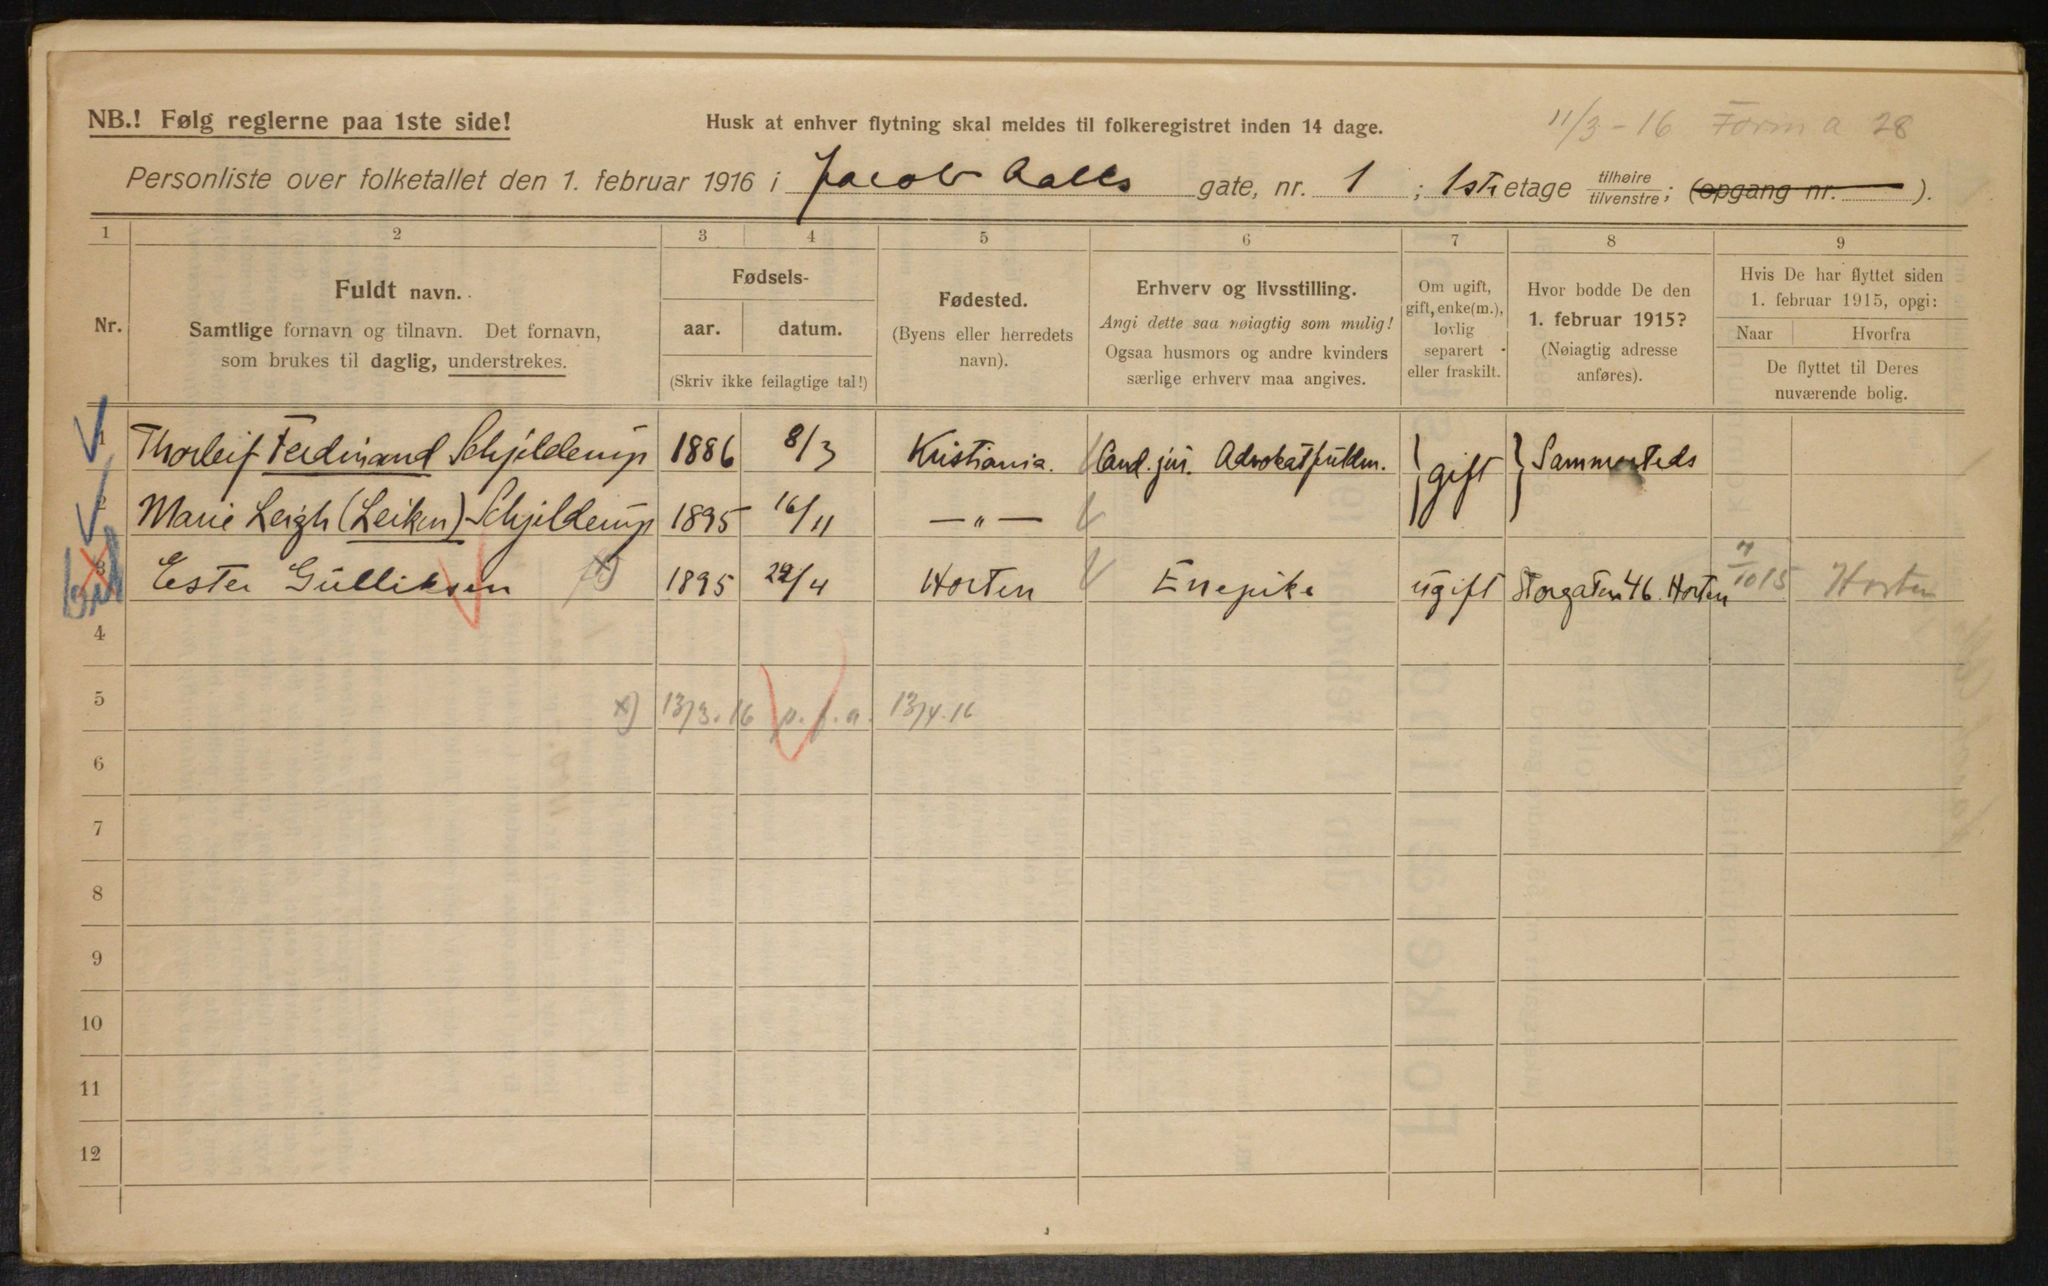 11/3 - 16 Form a 28
NB.! Følg reglerne paa 1ste side!
Husk at enhver flytning skal meldes til folkeregistret inden 14 dage.
Personliste over folketallet den 1. februar 1916 i Jacob Aalls gate, nr. 1; 1ste etage tilhøire/tilvenstre; (opgang nr. ).
1 2 3 4 5 6 7 8 9
Nr.
Fuldt navn.
Samtlige fornavn og tilnavn. Det fornavn,
som brukes til daglig, understrekes.
Fødsels-
aar. datum.
(Skriv ikke feilagtige tal!)
Fødested.
(Byens eller herredets
navn).
Erhverv og livsstilling.
Angi dette saa nøiagtig som mulig!
Ogsaa husmors og andre kvinders
særlige erhverv maa angives.
Om ugift,
gift, enke(m.),
lovlig
separert
eller fraskilt.
Hvor bodde De den
1. februar 1915?
(Nøiagtig adresse
anføres).
Hvis De har flyttet siden
1. februar 1915, opgi:
Naar Hvorfra
De flyttet til Deres
nuværende bolig.
1 Thorleif Ferdinand Schjelderup 1886 8/3 Kristiania. Cand. jur. Advokatfuldm. gift Sammesteds
2 Marie Leigh (Leiken) Schjelderup 1895 16/11 — " —
3 Ester Gulliksen x) 1895 29/4 Horten Enepike ugift Storgaten 46. Horten 7/10 15 Horten
4
5 x) 13/3. 16 p. f. a. 13/4. 16
6
7
8
9
10
11
12